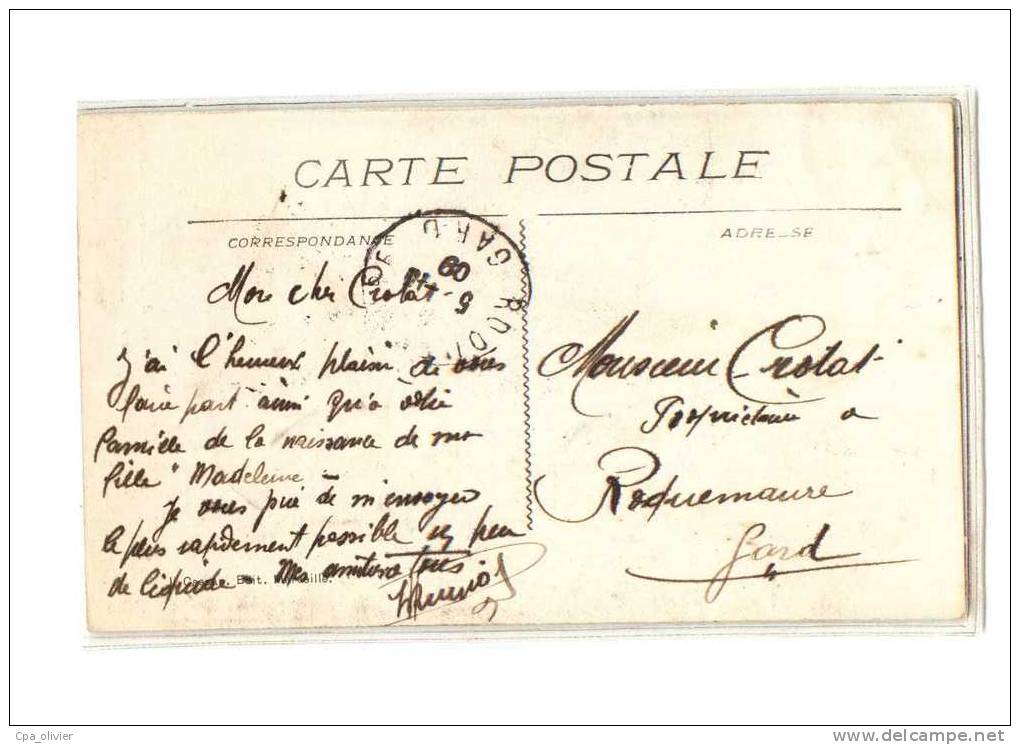 CARTE POSTALE
CORRESPONDANCE
ADRESSE
GARD
5
09
Mon cher Crolat
J'ai l'heureux plaisir de vous
faire part ainsi qu'à votre
famille de la naissance de ma
fille "Madeleine"
Je vous prie de m'envoyer
le plus rapidement possible un peu
de liquide. Mes amitiés à tous
Edit. Marseille.
Monsieur Crolat
Propriétaire à
Roquemaure
Gard
Cpa_olivier
www.delcampe.net